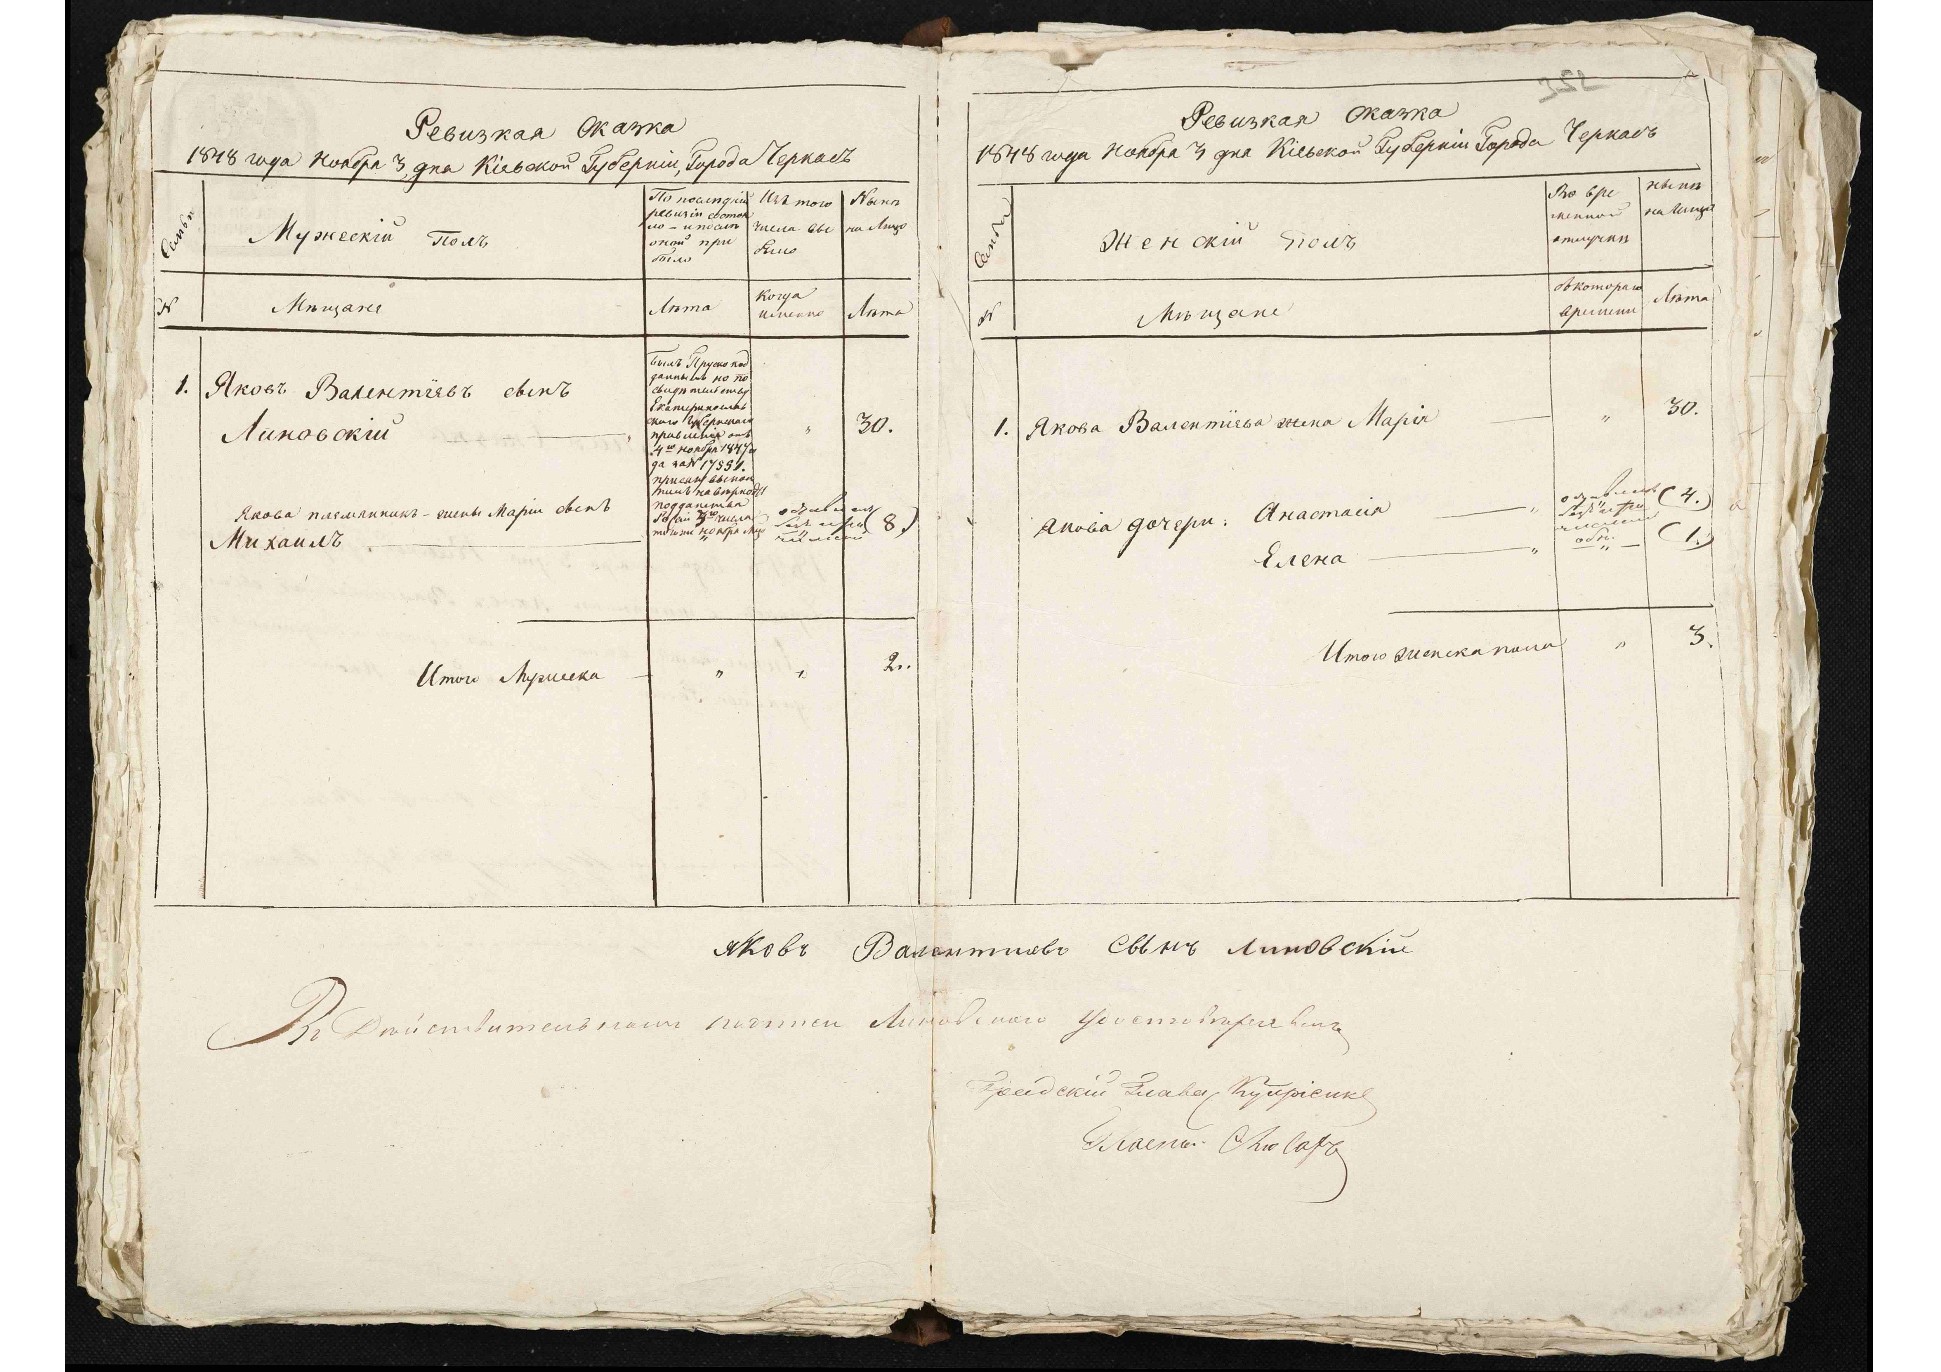 Ревизкая сказка
1848 года Ноября 3, дня Кіевской Губерніи, Города Черкасъ
Семьи
Мужескій Полъ
По последней
ревизіи состоя
ло – и после
оной при
было
Изъ того
числа вы
было
Ныне
на Лицо
№
Мѣщане
Лѣта
Когда
именно
Лѣта
1.
Яковъ Валентіевъ сынъ
Линовскій
былъ Пруско под
даннымъ но по
свидѣтельству
Екатеринослав
скаго Губернскаго
правленія отъ
4го ноября 1847 го
да за №
поданства
30.
Якова племянникъ – жены Маріи сынъ
Михаилъ
(8.)
Итого Мужеска
2.
Ревизкая сказка
1848 года Ноября 3 дня Кіевской Губерніи Города Черкасъ
Семьи
Женскій Полъ
Во вре
менной
отлучки
ныне
на лицо
№
Мѣщане
съ котораго
времени
Лѣта
1.
Якова Валентіева жена Марія
30.
Якова дочери: Анастасія
(4.)
Елена
(1.)
Итого женска пола
3.
Яковъ Валентиевъ Сынъ Линовскій
Въ Действительности подписи Линовского
Градскій Глава Купріенко